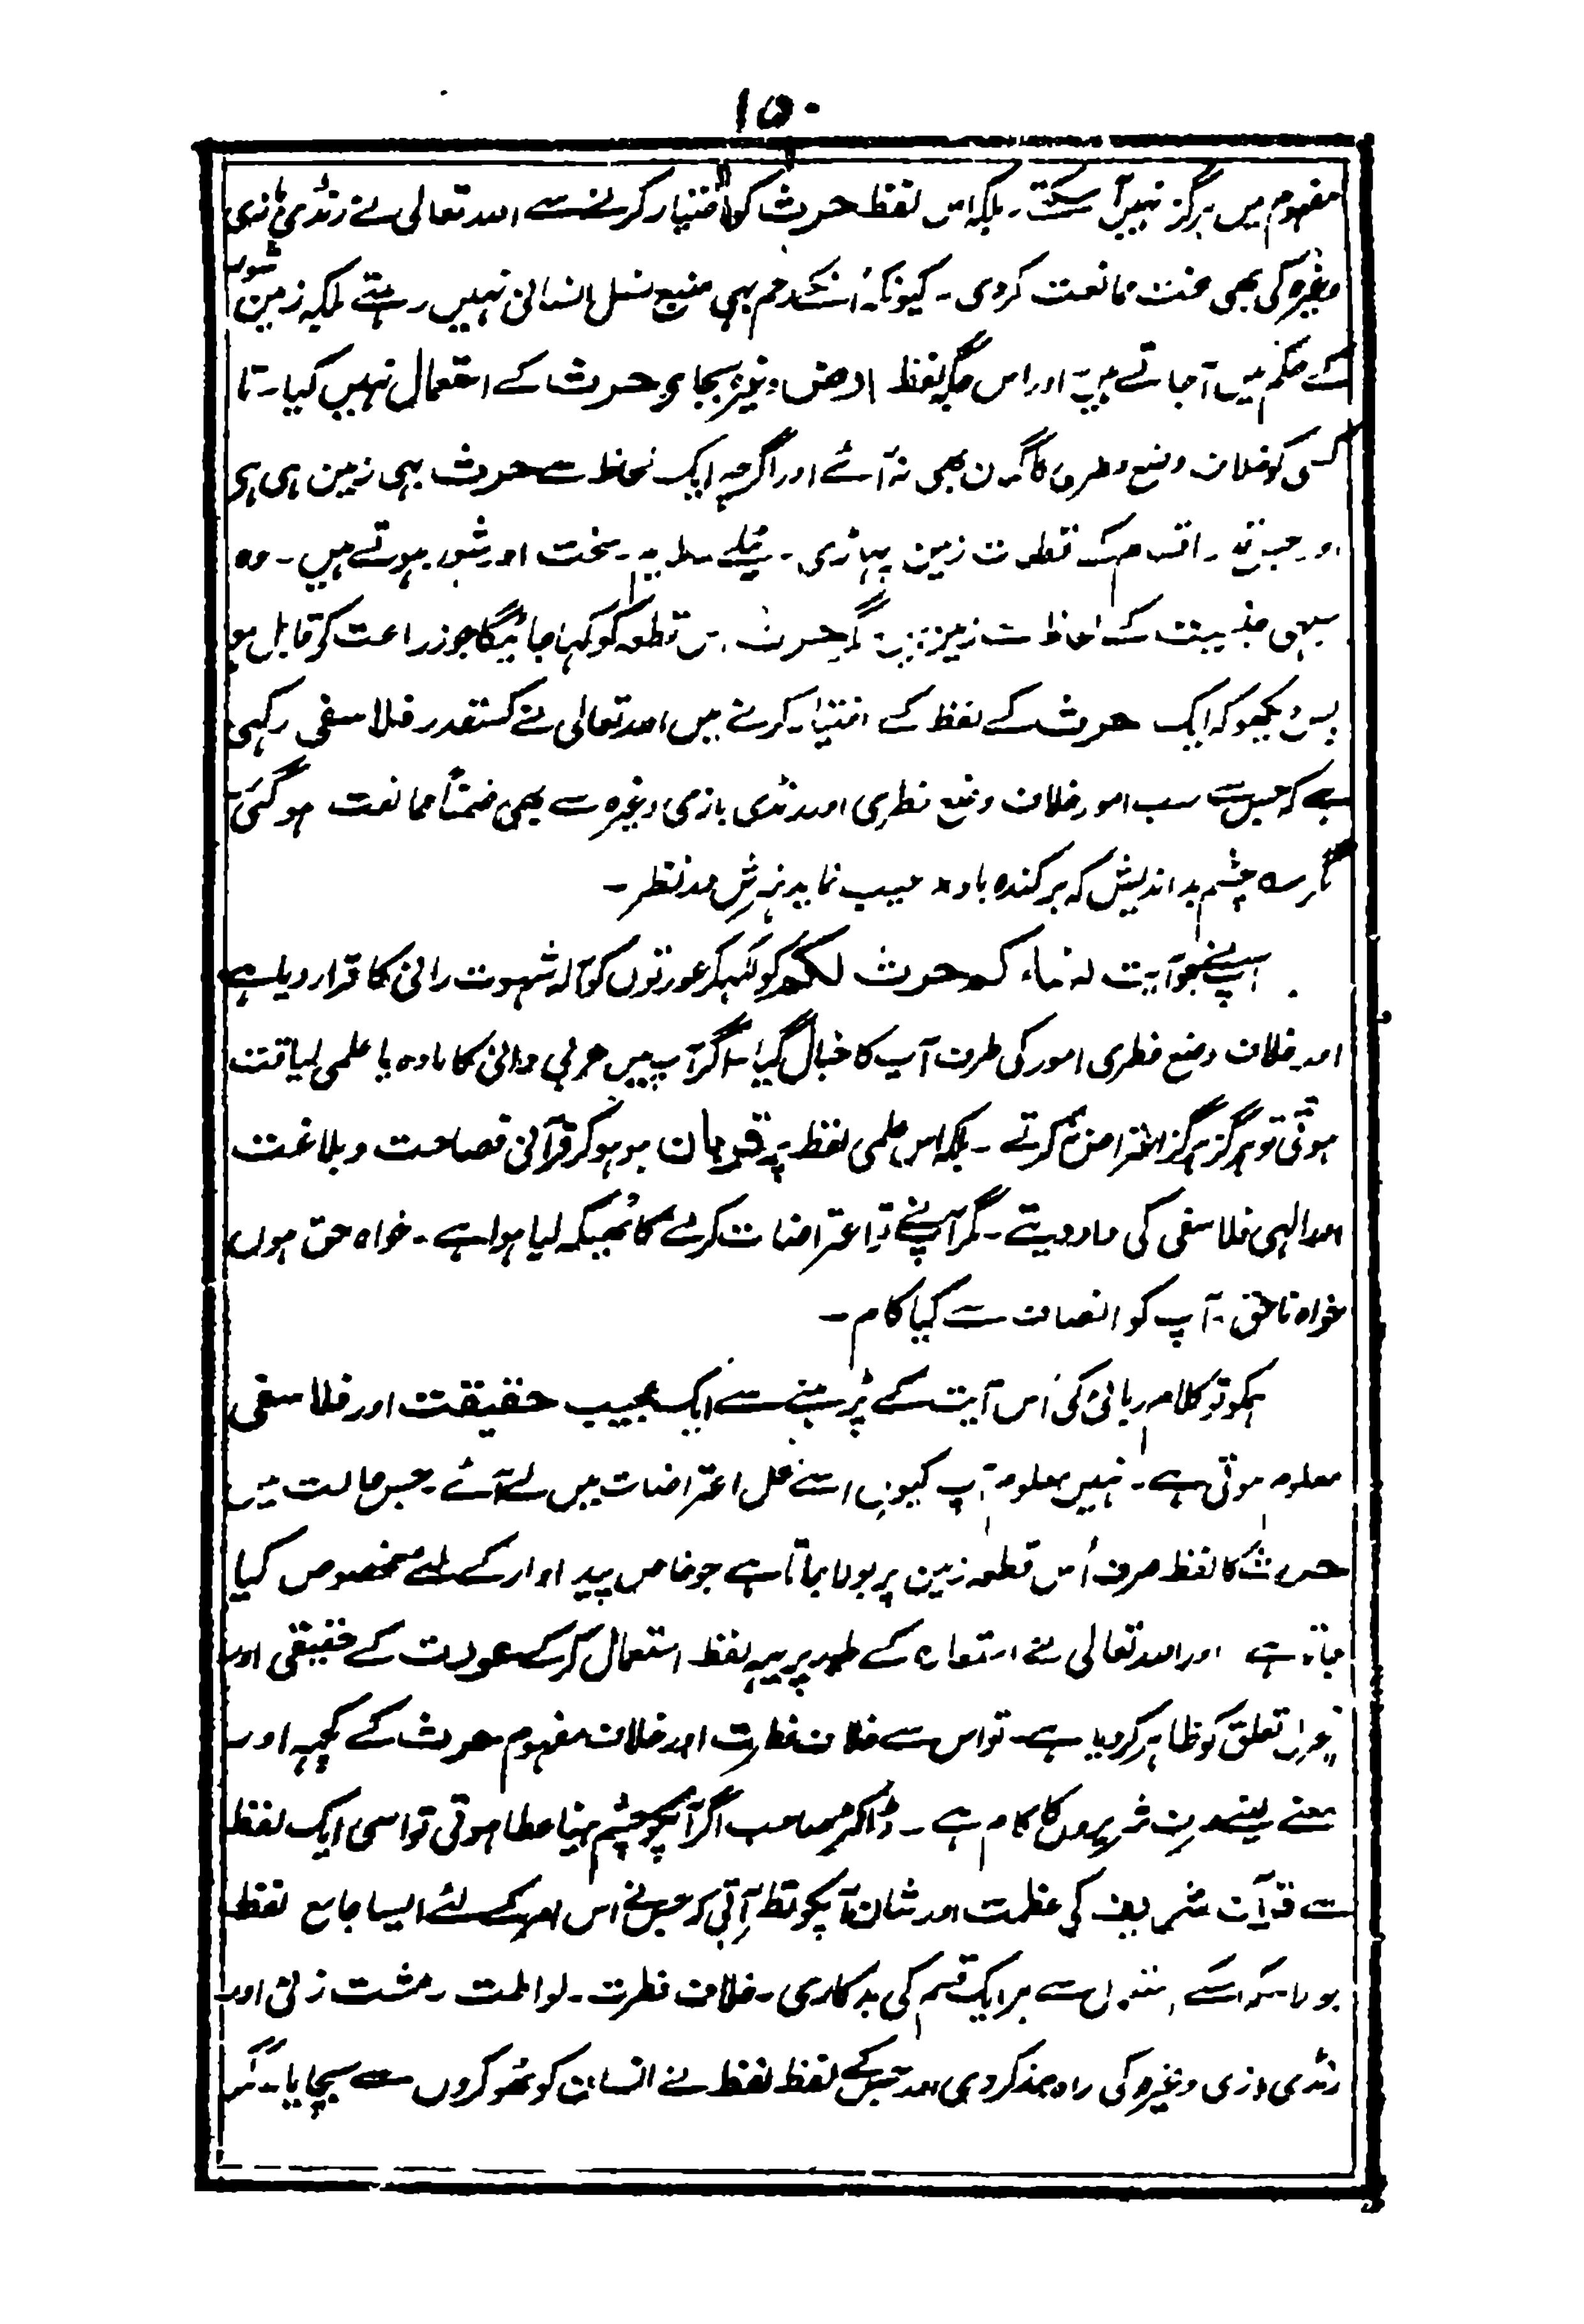 ۱۵۰
مفہوم میں ہرگز نہیں آ سکتے۔ بلکہ اس لفظ حرث کو اختیار کرنے سے اللہ تعالی نے رنڈی بازی
وغیرہ کی بھی سخت ممانعت کردی۔ کیونکہ اُنکے رحم بہی منبع نسل انسانی نہیں رہتے بلکہ زمین شور
کے حکم میں آجاتے ہیں اور اس جگہ لفظ ارض وغیرہ بجاے حرث کے استعمال نہیں کیا۔ تا
کسی کو خلاف وضع فطری کا گمان بھی نہ آئے اور اگرچہ ایک لحاظ سے حرث بہی زمین ہی ہی
اور جسقدر اقسام کے قطعات زمین پہاڑی۔ ٹیلے سخت اور شور ہوتے ہیں۔ وہ
سبہی جنسیت کے لحاظ سے زمین ہیں مگر حرث اس قطعہ کو کہا جائیگا جو زراعت کے قابل ہو
پس دیکھو کہ ایک حرث کے لفظ کے اختیار کرنے میں اللہ تعالی نے کسقدر فلاسفی رکہی
ہے کہ جس سے سب امور خلاف وضع فطری اور رنڈی بازی وغیرہ سے بھی ضمناً ممانعت ہوگئی
مگر ؎ چشم بد اندیش کہ برکندہ باد٭ عیب نماید ہنرش در نظر۔
آپنے جو آیت نساء کم حرث لکم کو لکہکر عورتوں کو آلہ شہوت رانی کا قرار دیا ہے
اور خلاف وضع فطری امور کی طرف آپ کا خیال گیا۔ اگر آپ میں عربی دانی کا مادہ یا علمی لیاقت
ہوتی تو ہرگز ہرگز اعتراض نہ کرتے۔ بلکہ اس علمی لفظ پہ قربان ہو ہو کر قرآنی فصاحت و بلاغت
اور الہی فلاسفی کی داد دیتے۔ مگر آپنے تو اعتراضات کرنے کا ٹھیکہ لیا ہوا ہے۔ خواہ حق ہوں
خواہ ناحق۔ آپ کو انصاف سے کیا کام۔
ہمکو تو کلام ربانی کی اُس آیت کے پڑہنے سے ایک عجیب حقیقت اور فلاسفی
معلوم ہوتی ہے۔ نہیں معلوم آپ کیوں اسے محل اعتراضات میں لے آئے۔ جس حالت میں
حرث کا لفظ صرف اُس قطعہ زمین پر بولا جاتا ہے جو خاص پیداوار کے لئے مخصوص کیا
جاتا ہے اور اللہ تعالی نے استعارہ کے طور پر یہہ لفظ استعمال کرکے عورت کے حقیقی اور
تعلق کو ظاہر کردیا ہے۔ تو اس سے خلاف فطرت اور خلاف مفہوم حرث کے کچہہ اور
معنے لینے صرف شریروں کا کام ہے۔ ڈاکٹر صاحب اگر آپکو چشم بینا عطا ہوتی تو اسی ایک لفظ
سے قرآن شریف کی عظمت اور شان آپکو نظر آتی کہ جس نے اس امر کے لئے ایسا جامع لفظ
بولا کہ اسکے سے ہر ایک قسم کی بدکاری۔ خلاف فطرت۔ لواطت۔ مشت زنی اور
رنڈی بازی وغیرہ کی راہ بند کردی اور جس کے لفظ لفظ نے انسان کو ٹھوکروں سے بچایا۔ مگر